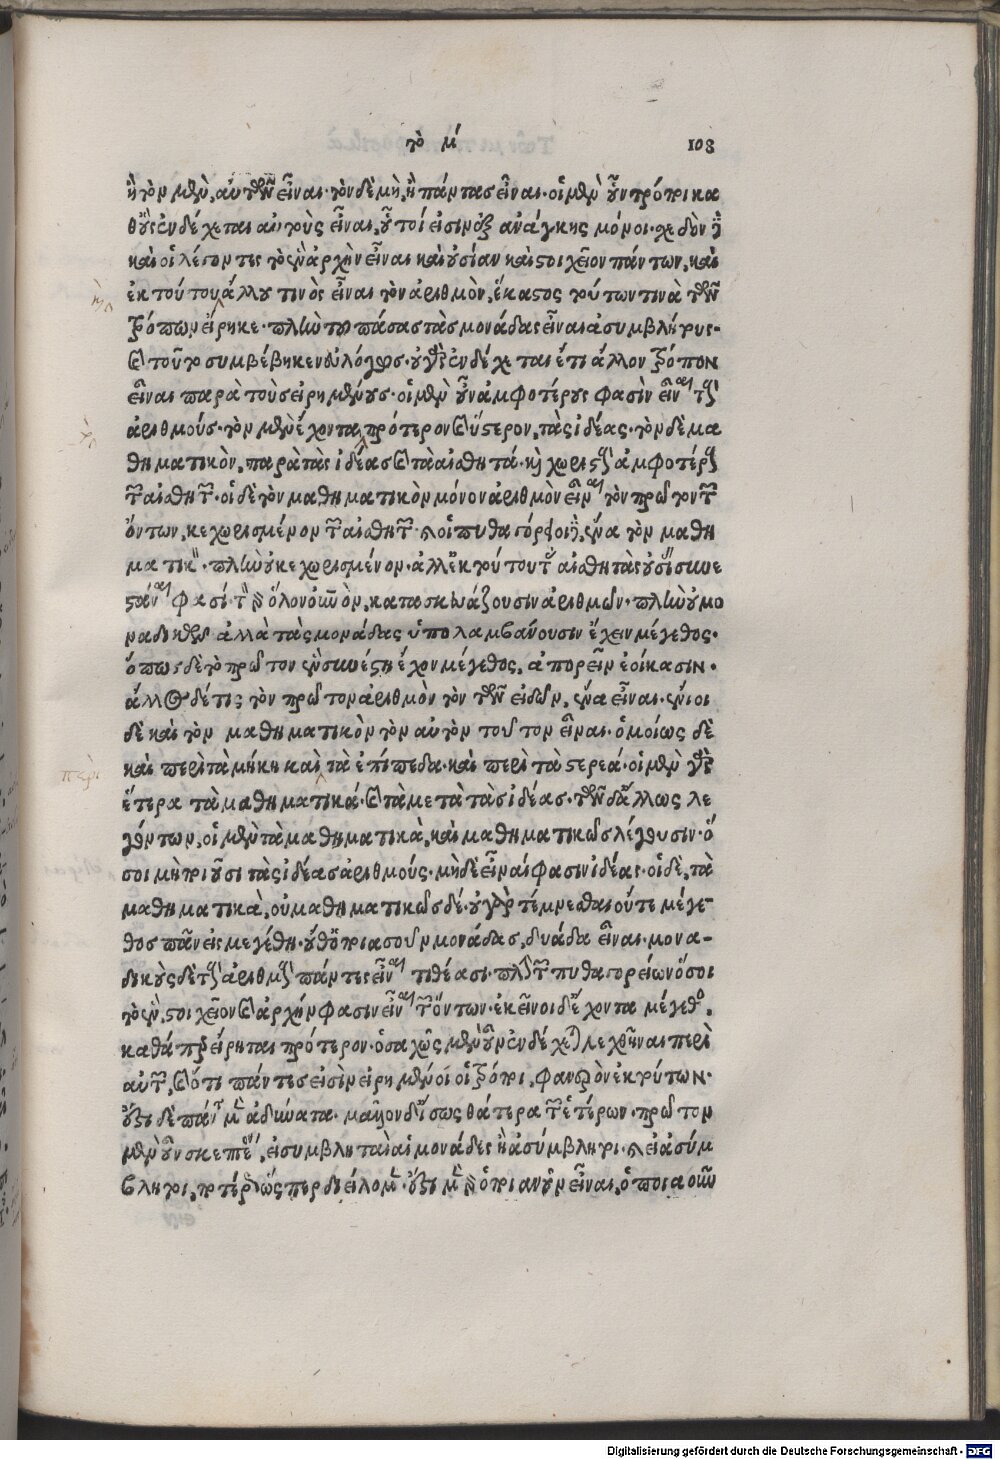 τὸ μ′ 103
ἢ τὸν μὲν αὐτῶν εἶναι· τὸν δὲ μὴ, ἢ πάντας εἶναι· οἱ μὲν οὖν τρόποι κα
θ' οὓς ἐνδέχεται αὐτοὺς εἶναι, οὗτοί εἰσιν ἐξ ἀνάγκης μόνοι· σχεδὸν δὲ
καὶ οἱ λέγοντες τὸ ἓν ἀρχὴν εἶναι καὶ οὐσίαν καὶ στοιχεῖον πάντων, καὶ
ἐκ τούτου ἄλλου τινὸς εἶναι τὸν ἀριθμὸν, ἕκαστος τούτων τινὰ τῶν
τρόπων εἴρηκε· πλὴν τοῦ πάσας τὰς μονάδας εἶναι ἀσυμβλήτους·
καὶ τοῦτο συμβέβηκεν εὐλόγως· οὐ γὰρ ἐνδέχεται ἔτι ἄλλον τρόπον
εἶναι παρὰ τοὺς εἰρημένους· οἱ μὲν οὖν ἀμφοτέρους φασὶν εἶναι τοὺς
ἀριθμούς· τὸν μὲν ἔχοντα πρότερον καὶ ὕστερον, τὰς ἰδέας· τὸν δὲ μα
θηματικὸν, παρὰ τὰς ἰδέας καὶ τὰ αἰσθητά· καὶ χωριστοὺς ἀμφοτέρους
τῶν αἰσθητῶν· οἱ δὲ τὸν μαθηματικὸν μόνον ἀριθμὸν εἶναι τὸν πρῶτον τῶν
ὄντων, κεχωρισμένον τῶν αἰσθητῶν· καὶ οἱ πυθαγόρειοι δὲ, ἕνα τὸν μαθη
ματικόν· πλὴν οὐ κεχωρισμένον· ἀλλ' ἐκ τούτου τὰς αἰσθητὰς οὐσίας συνε
στάναι φασί· τὸν γὰρ ὅλον οὐρανὸν, κατασκευάζουσιν ἀριθμῶν· πλὴν οὐ μο
ναδικῶν ἀλλὰ τὰς μονάδας ὑπολαμβάνουσιν ἔχειν μέγεθος·
ὅπως δὲ τὸ πρῶτον ἓν συνέστη ἔχον μέγεθος, ἀπορεῖν ἐοίκασιν·
ἄλλος δέ τις τὸν πρῶτον ἀριθμὸν τὸν τῶν εἰδῶν, ἕνα εἶναι· ἔνιοι
δὲ καὶ τὸν μαθηματικὸν τὸν αὐτὸν τοῦτον εἶναι· ὁμοίως δὲ
καὶ περὶ τὰ μήκη καὶ τὰ ἐπίπεδα· καὶ περὶ τὰ στερεά· οἱ μὲν γὰρ
ἕτερα τὰ μαθηματικά· καὶ τὰ μετὰ τὰς ἰδέας· τῶν δ' ἄλλως λε
γόντων, οἱ μὲν τὰ μαθηματικὰ, καὶ μαθηματικῶς λέγουσιν· ὅ
σοι μὴ ποιοῦσι τὰς ἰδέας ἀριθμούς· μηδὲ εἶναί φασιν ἰδέας· οἱ δὲ, τὰ
μαθηματικὰ, οὐ μαθηματικῶς δέ· οὐ γὰρ τέμνεσθαι οὔτε μέγε-
θος πᾶν εἰς μεγέθη· οὔθ' ὁποιασοῦν μονάδας, δυάδα εἶναι· μονα-
δικοὺς δὲ τοὺς ἀριθμοὺς πάντες εἶναι τιθέασι· πλὴν τῶν πυθαγορείων ὅσοι
τὸ ἓν, στοιχεῖον καὶ ἀρχήν φασιν εἶναι τῶν ὄντων· ἐκεῖνοι δ' ἔχοντα μέγεθος,
καθάπερ εἴρηται πρότερον· ὁσαχῶς μὲν οὖν ἐνδέχεται λεχθῆναι περὶ
αὐτῶν, καὶ ὅτι πάντες εἰσὶν εἰρημένοι οἱ τρόποι, φανερὸν ἐκ τούτων·
ἔστι δὲ πάντα μὲν ἀδύνατα· μᾶλλον δ' ἴσως θάτερα τῶν ἑτέρων· πρῶτον
μὲν οὖν σκεπτέον, εἰ συμβληταὶ αἱ μονάδες ἢ ἀσύμβλητοι· καὶ εἰ ἀσύμ
βλητοι, ποτέρως ὥσπερ διείλομεν· ἔστι μὲν γὰρ ὁποιανοῦν εἶναι, ὁποιαοῦν
περὶ
Digitalisierung gefördert durch die Deutsche Forschungsgemeinschaft - DFG